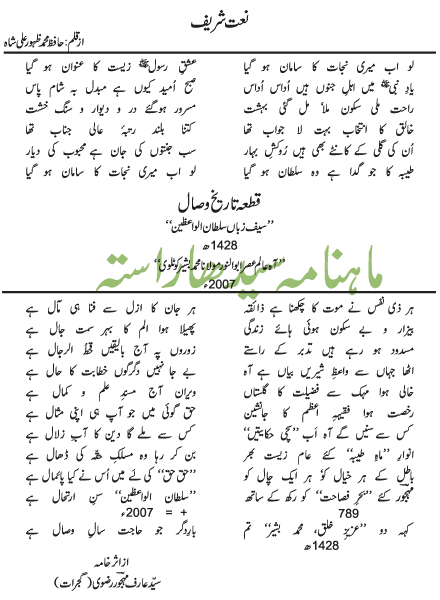 نعت شریف
از قلم: حافظ محمد ظہور علی شاہ
لو اب میری نجات کا سامان ہو گیا عشقِ رسولﷺ زیست کا عنوان ہو گیا
یادِ نبیﷺ میں اہلِ جنوں ہیں اُداس اُداس صبح اُمید کیوں ہے مبدل بہ شام یاس
راحت ملی سکون ملا مل گئی بہشت مسرور ہوگئے در و دیوار و سنگ خشت
خالق کا انتخاب بہت لا جواب تھا کتنا بلند رتبۂ عالی جناب تھا
اُن کی گلی کے کانٹے بھی ہیں رُوکشِ بہار سب جنتوں کی جان ہے محبوب کی دیار
طیبہ کا جو گدا ہے وہ سلطان ہو گیا لو اب میری نجات کا سامان ہو گیا
قطعہ تاریخ وصال
’’سیف زباں سلطان الواعظین‘‘
1428ھ
’’آہ عالم عصر ابوالنور مولانا محمد بشیر کوٹلوی‘‘
2007ء
ماہنامہ سیدھا راستہ
ہر ذی نفس نے موت کا چکھنا ہے ذائقہ ہر جان کا ازل سے فنا ہی مآل ہے
بیزار و بے سکون ہوئی ہائے زندگی پھیلا ہوا الم کا بہر سمت جال ہے
مسدود ہو رہے ہیں تدبر کے راستے زوروں پہ آج بالیقیں قحط الرجال ہے
اٹھا جہاں سے واعظِ شیریں بیاں ہے آہ بے جا نہیں دگرگوں خطابت کا حال ہے
خالی ہوا مہک سے فضیلت کا گلستاں ویران آج مسندِ علم و کمال ہے
رخصت ہوا فقیہہِ اعظم کا جانشیں حق گوئی میں جو آپ ہی اپنی مثال ہے
کس سے سنیں گے آہ اَب ’’سچی حکایتیں‘‘ کس سے ملے گا دین کا آب زلال ہے
انوارِ ’’ماہِ طیبہ‘‘ کئے عام زیست بھر بن کر رہا وہ مسلکِ حقہ کی ڈھال ہے
باطل کے ہر خیال کو ہر ایک چال کو ’’حق حق‘‘ کی لَے میں اُس نے کیا پائمال ہے
مہجور کئے ’’بحرِ فصاحت‘‘ کو رکھ کے ساتھ ’’سلطان الواعظین‘‘ سنِ ارتحال ہے
789 + = 2007ء
کہہ دو ’’عزیزِ خلق، محمد بشیر‘‘ تم بارِدِگر جو حاجت سالِ وصال ہے
1428ھ
از اثر خامہ
سیّد عارف مہجور رضوی (گجرات)